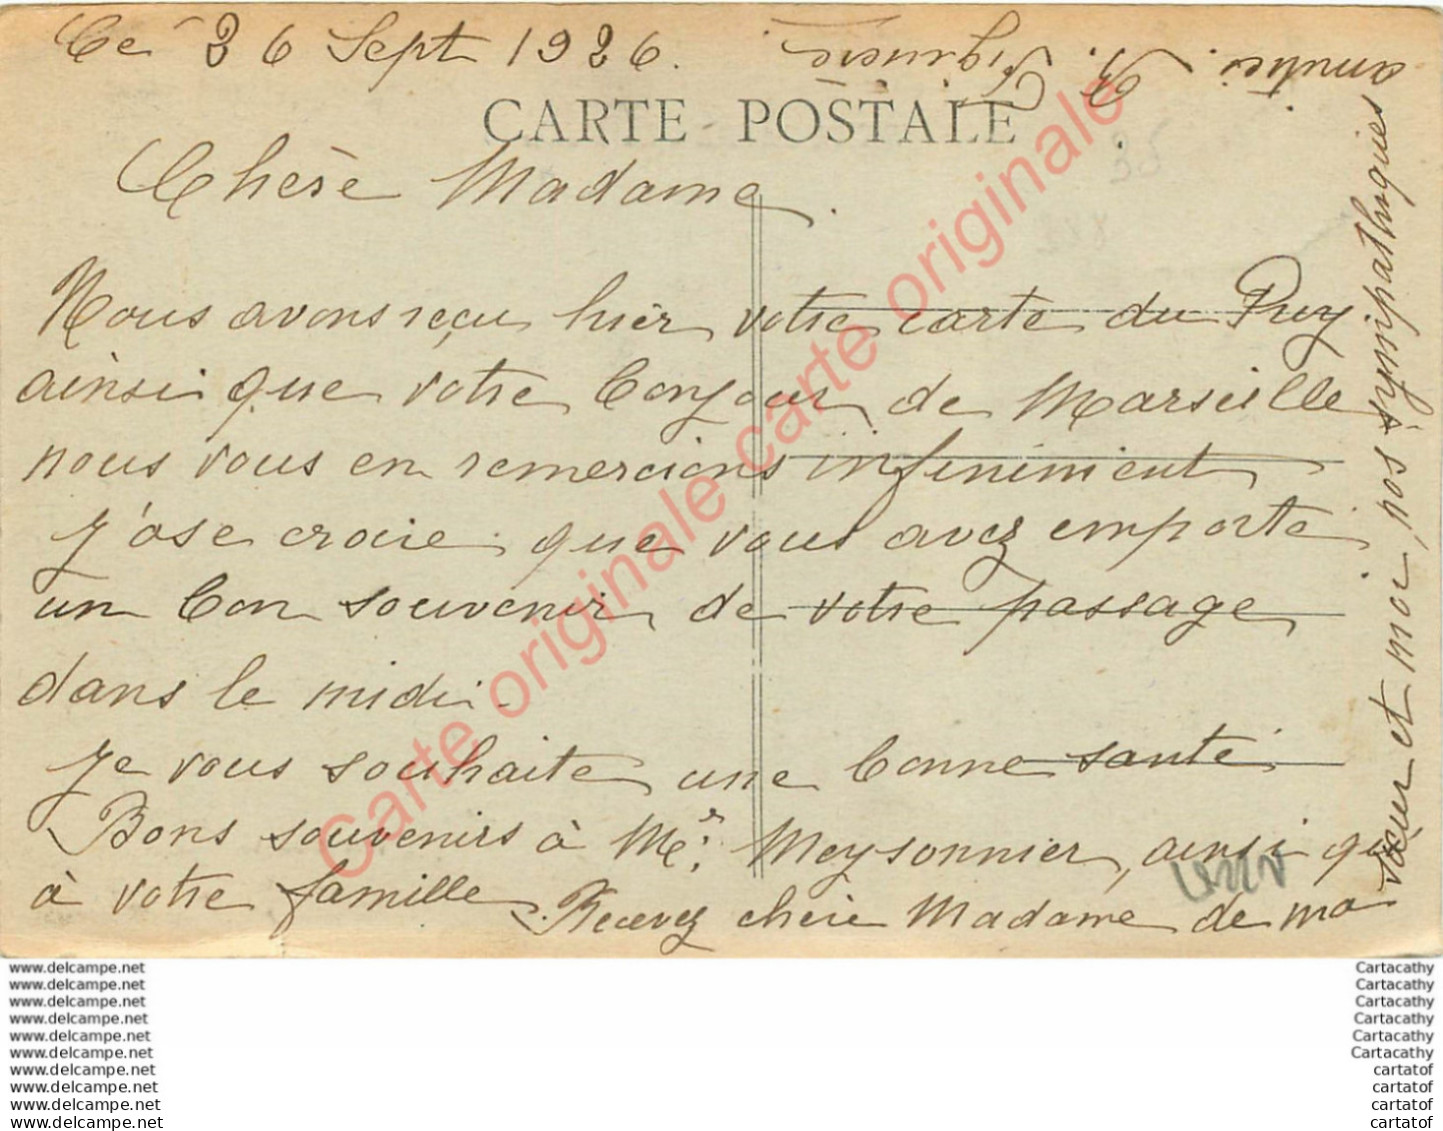 Ce 26 Sept 1926.
CARTE POSTALE
Chère Madame.
Nous avons reçu hier votre carte du Puy
ainsi que votre bonjour de Marseille
nous vous en remercions infiniment
J'ose croire que vous avez emporté
un bon souvenir de votre passage
dans le midi.
Je vous souhaite une bonne santé
Bons souvenirs à Mr. Meysonnier, ainsi qu
à votre famille Recevez chère Madame de ma
sœur et moi, nos sympathiques
amitiés. R. Figuière.
Carte originale carte originale carte originale
www.delcampe.net
www.delcampe.net
www.delcampe.net
www.delcampe.net
www.delcampe.net
www.delcampe.net
www.delcampe.net
www.delcampe.net
www.delcampe.net
www.delcampe.net
Cartacathy
Cartacathy
Cartacathy
Cartacathy
Cartacathy
Cartacathy
cartatof
cartatof
cartatof
cartatof